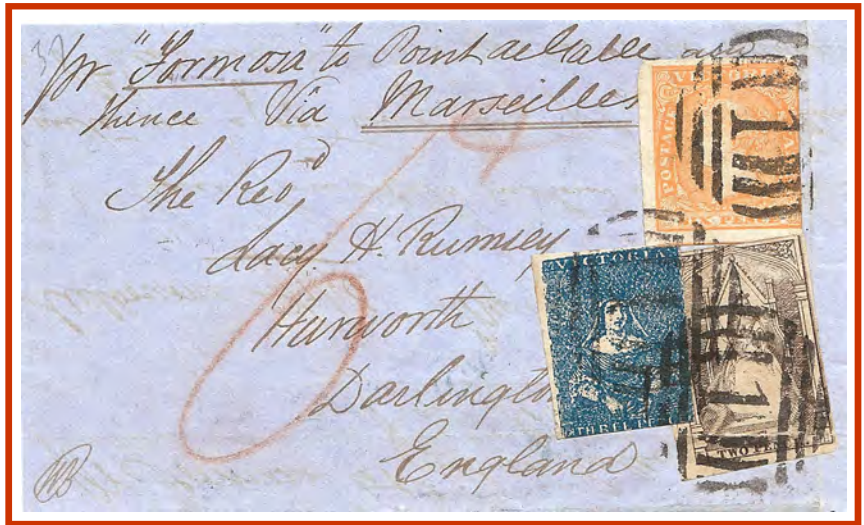 pr "Formosa" to Point de Galle and
thence Via Marseilles
The Revd
Lacy H. Rumsey
Hurworth
Darlingto
England
VICTORIA
POSTAGE
VICTORIA
THREE PE
TWO
1
1